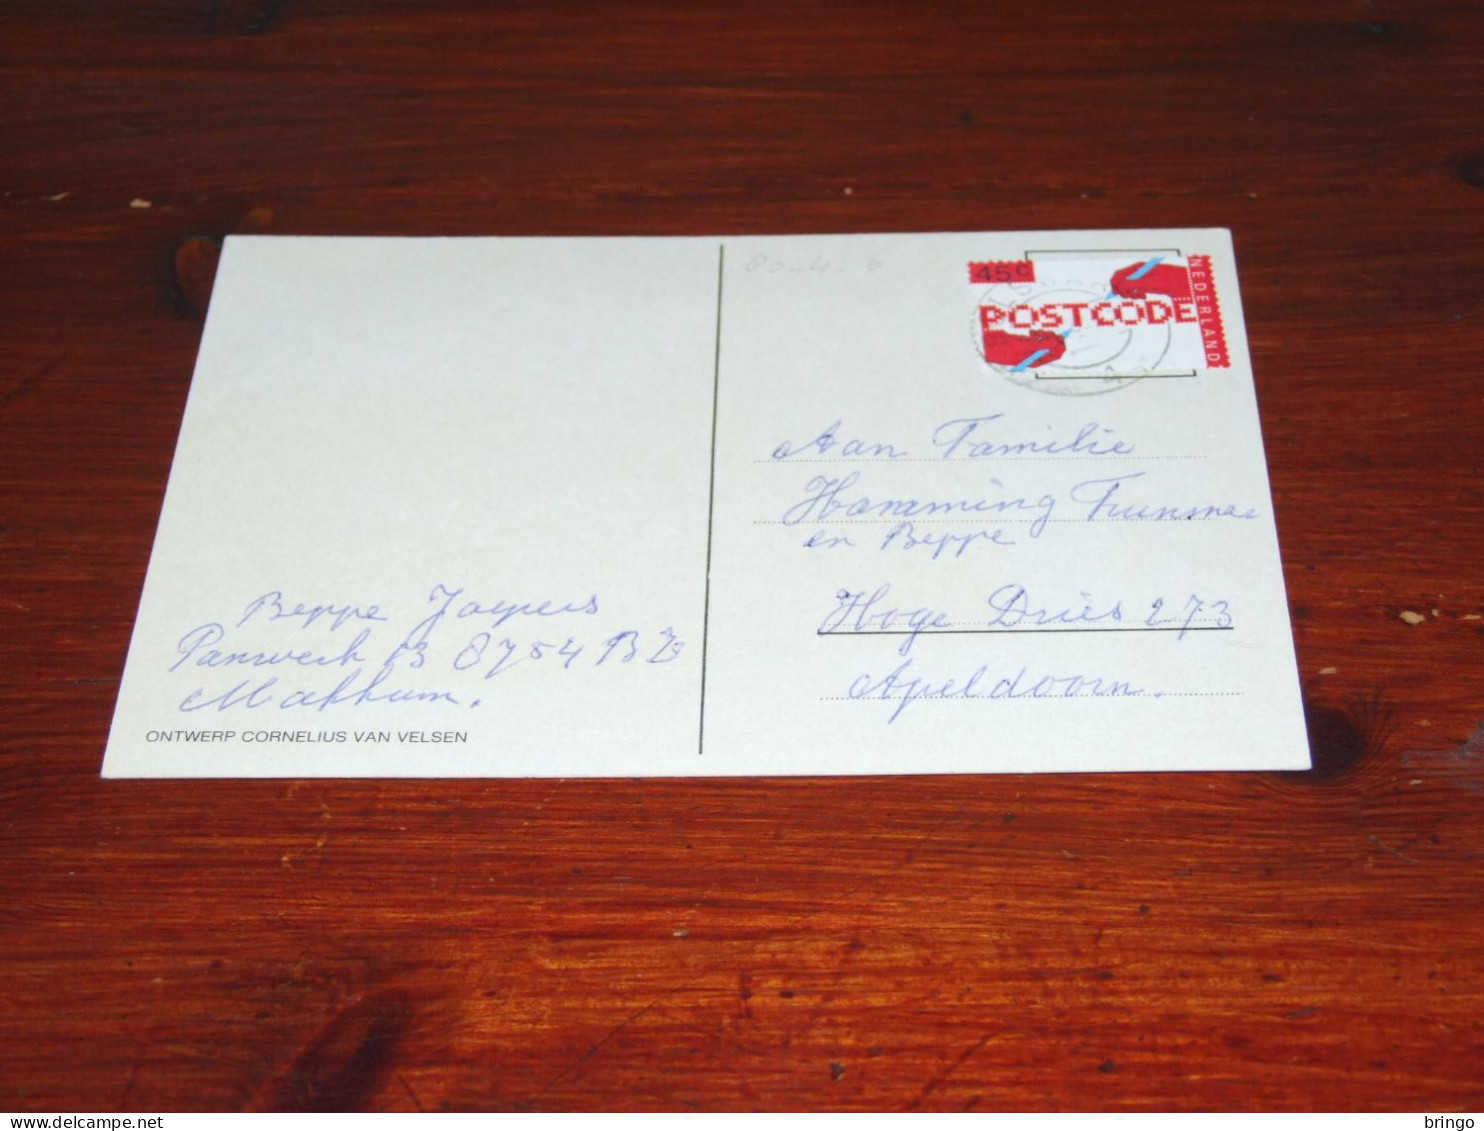 80-4-6
45c
POSTCODE
NEDERLAND
Aan Familie
Hamming
en Beppe
Hoge Dries 273
Apeldoorn.
Beppe
Panwerk 13 8754 BZ
Makkum.
ONTWERP CORNELIUS VAN VELSEN
delcampe.net
bringo